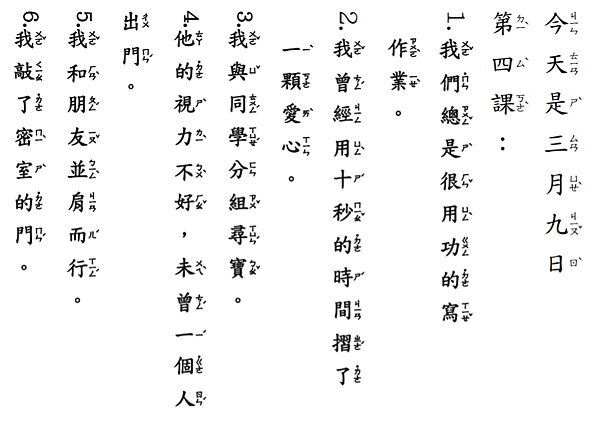 今天是三月九日
第四課：
1.我們總是很用功的寫
作業。
2.我曾經用十秒的時間摺了
一顆愛心。
3.我與同學分組尋寶。
4.他的視力不好，未曾一個人
出門。
5.我和朋友並肩而行。
6.我敲了密室的門。